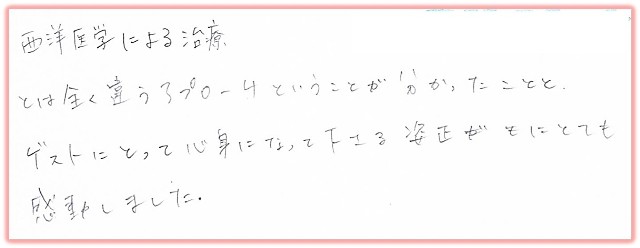 西洋医学による治療
とは全く違うアプローチということが分かったことと、
ゲストにとって心身になって下さる姿正がともにとても
感動しました。